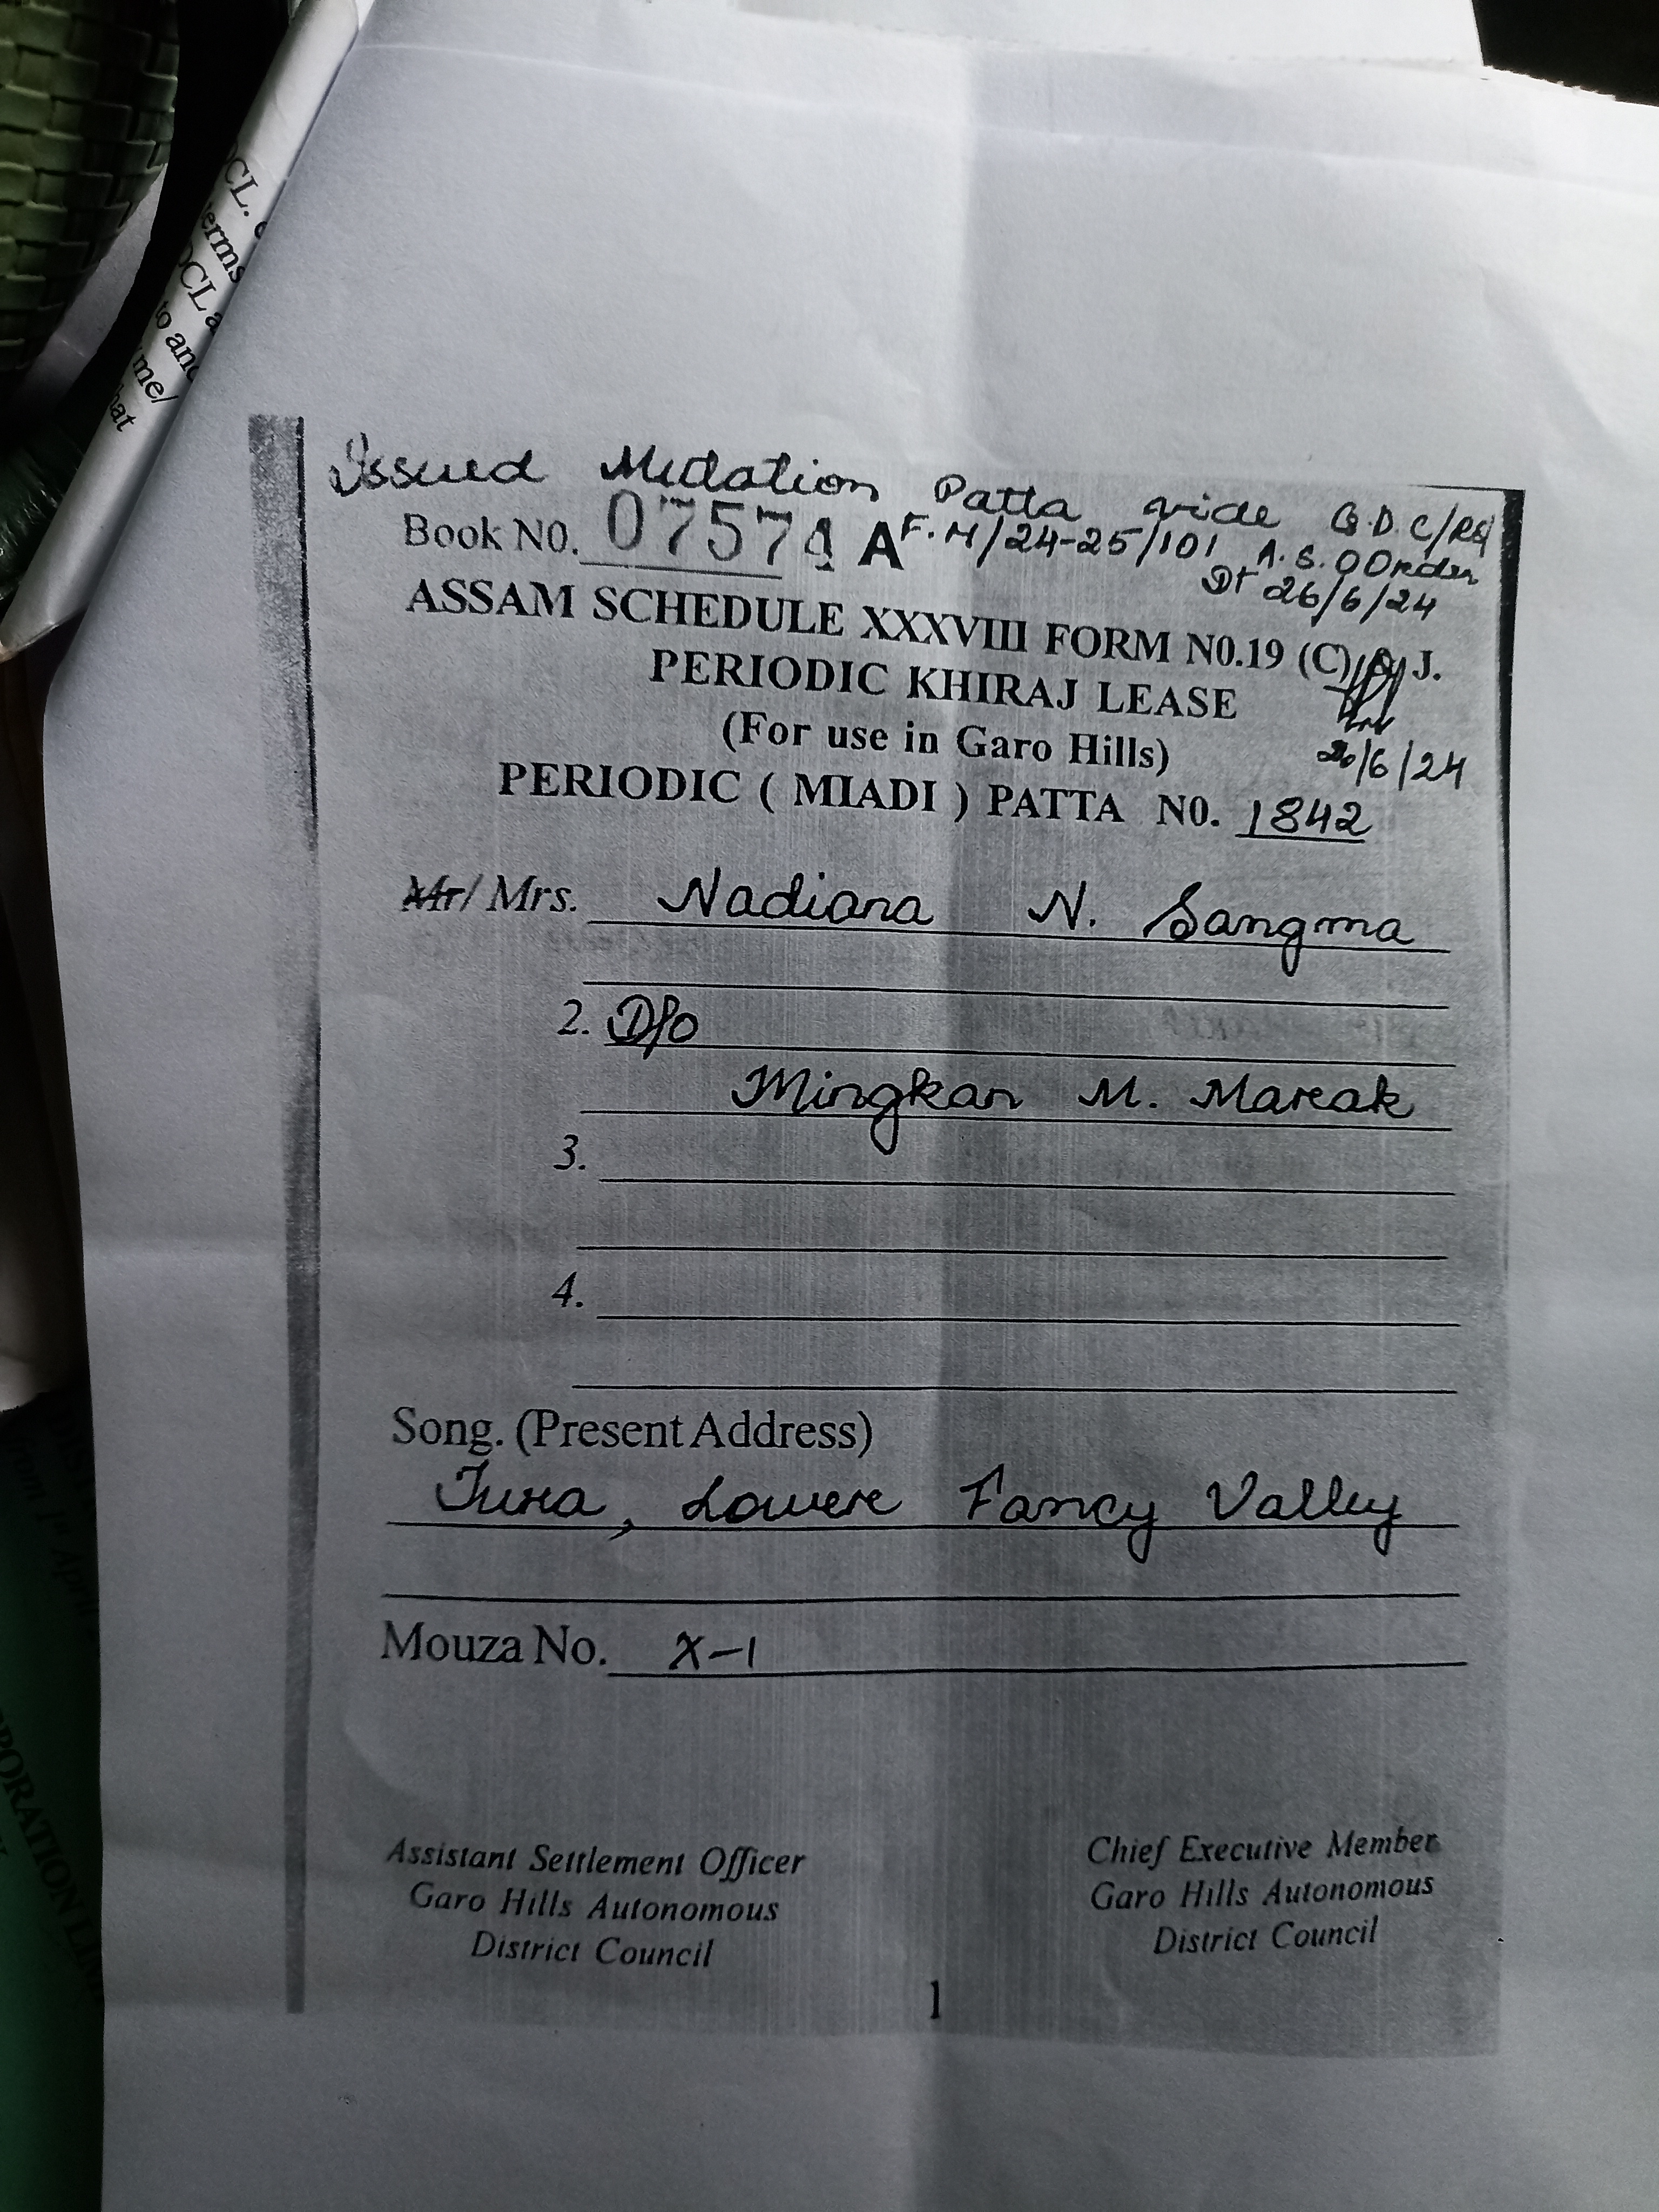 Issued Mutation Patta vide G.D.C/RS/
Book N0. 07574 A F.M/24-25/101 A.S.O Order
Dt 26/6/24
ASSAM SCHEDULE XXXVIII FORM N0.19 (C) & J.
PERIODIC KHIRAJ LEASE
(For use in Garo Hills)
26/6/24
PERIODIC ( MIADI ) PATTA N0. 1842
Mr/ Mrs. Nadiana N. Sangma
2. D/o
Mingkan M. Marak
3.
4.
Song. (Present Address)
Tura, Lower Fancy Valley
Mouza No. X-1
Assistant Settlement Officer
Garo Hills Autonomous
District Council
Chief Executive Member
Garo Hills Autonomous
District Council
1
OCL.
erms
OCL a
to and
me/
hat
April
PORATION LI